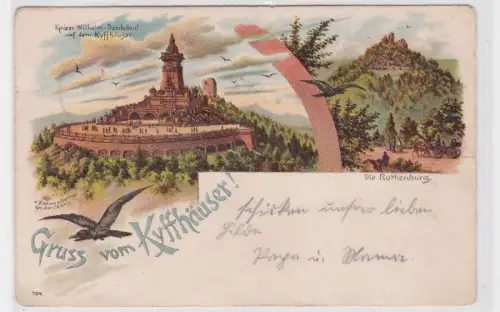 Kaiser Wilhelm-Denkmal
auf dem Kyffhäuser.
Die Rothenburg.
Gruss vom Kyffhäuser!
schicken unsrer lieben
Hilde
Papa u. Mama.
764